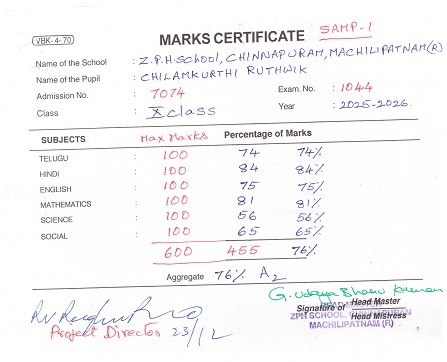 VBK-4-70
MARKS CERTIFICATE SAMP-1
Name of the School : Z.P.H.School, CHINNAPURAM, MACHILIPATNAM(R)
Name of the Pupil : CHILAMKURTHI RUTHWIK
Admission No. : 7074 Exam. No. : 1044
Class : X class Year : 2025-2026.
SUBJECTS Max Marks Percentage of Marks
TELUGU : 100 74 74%
HINDI : 100 84 84%
ENGLISH : 100 75 75%
MATHEMATICS : 100 81 81%
SCIENCE : 100 56 56%
SOCIAL : 100 65 65%
600 455 76%
Aggregate 76% A2
G. Udaya Bhanu Kumar
Signature of Head Master
Head Mistress
ZPH SCHOOL,
MACHILIPATNAM (R)
Project Director 23/12